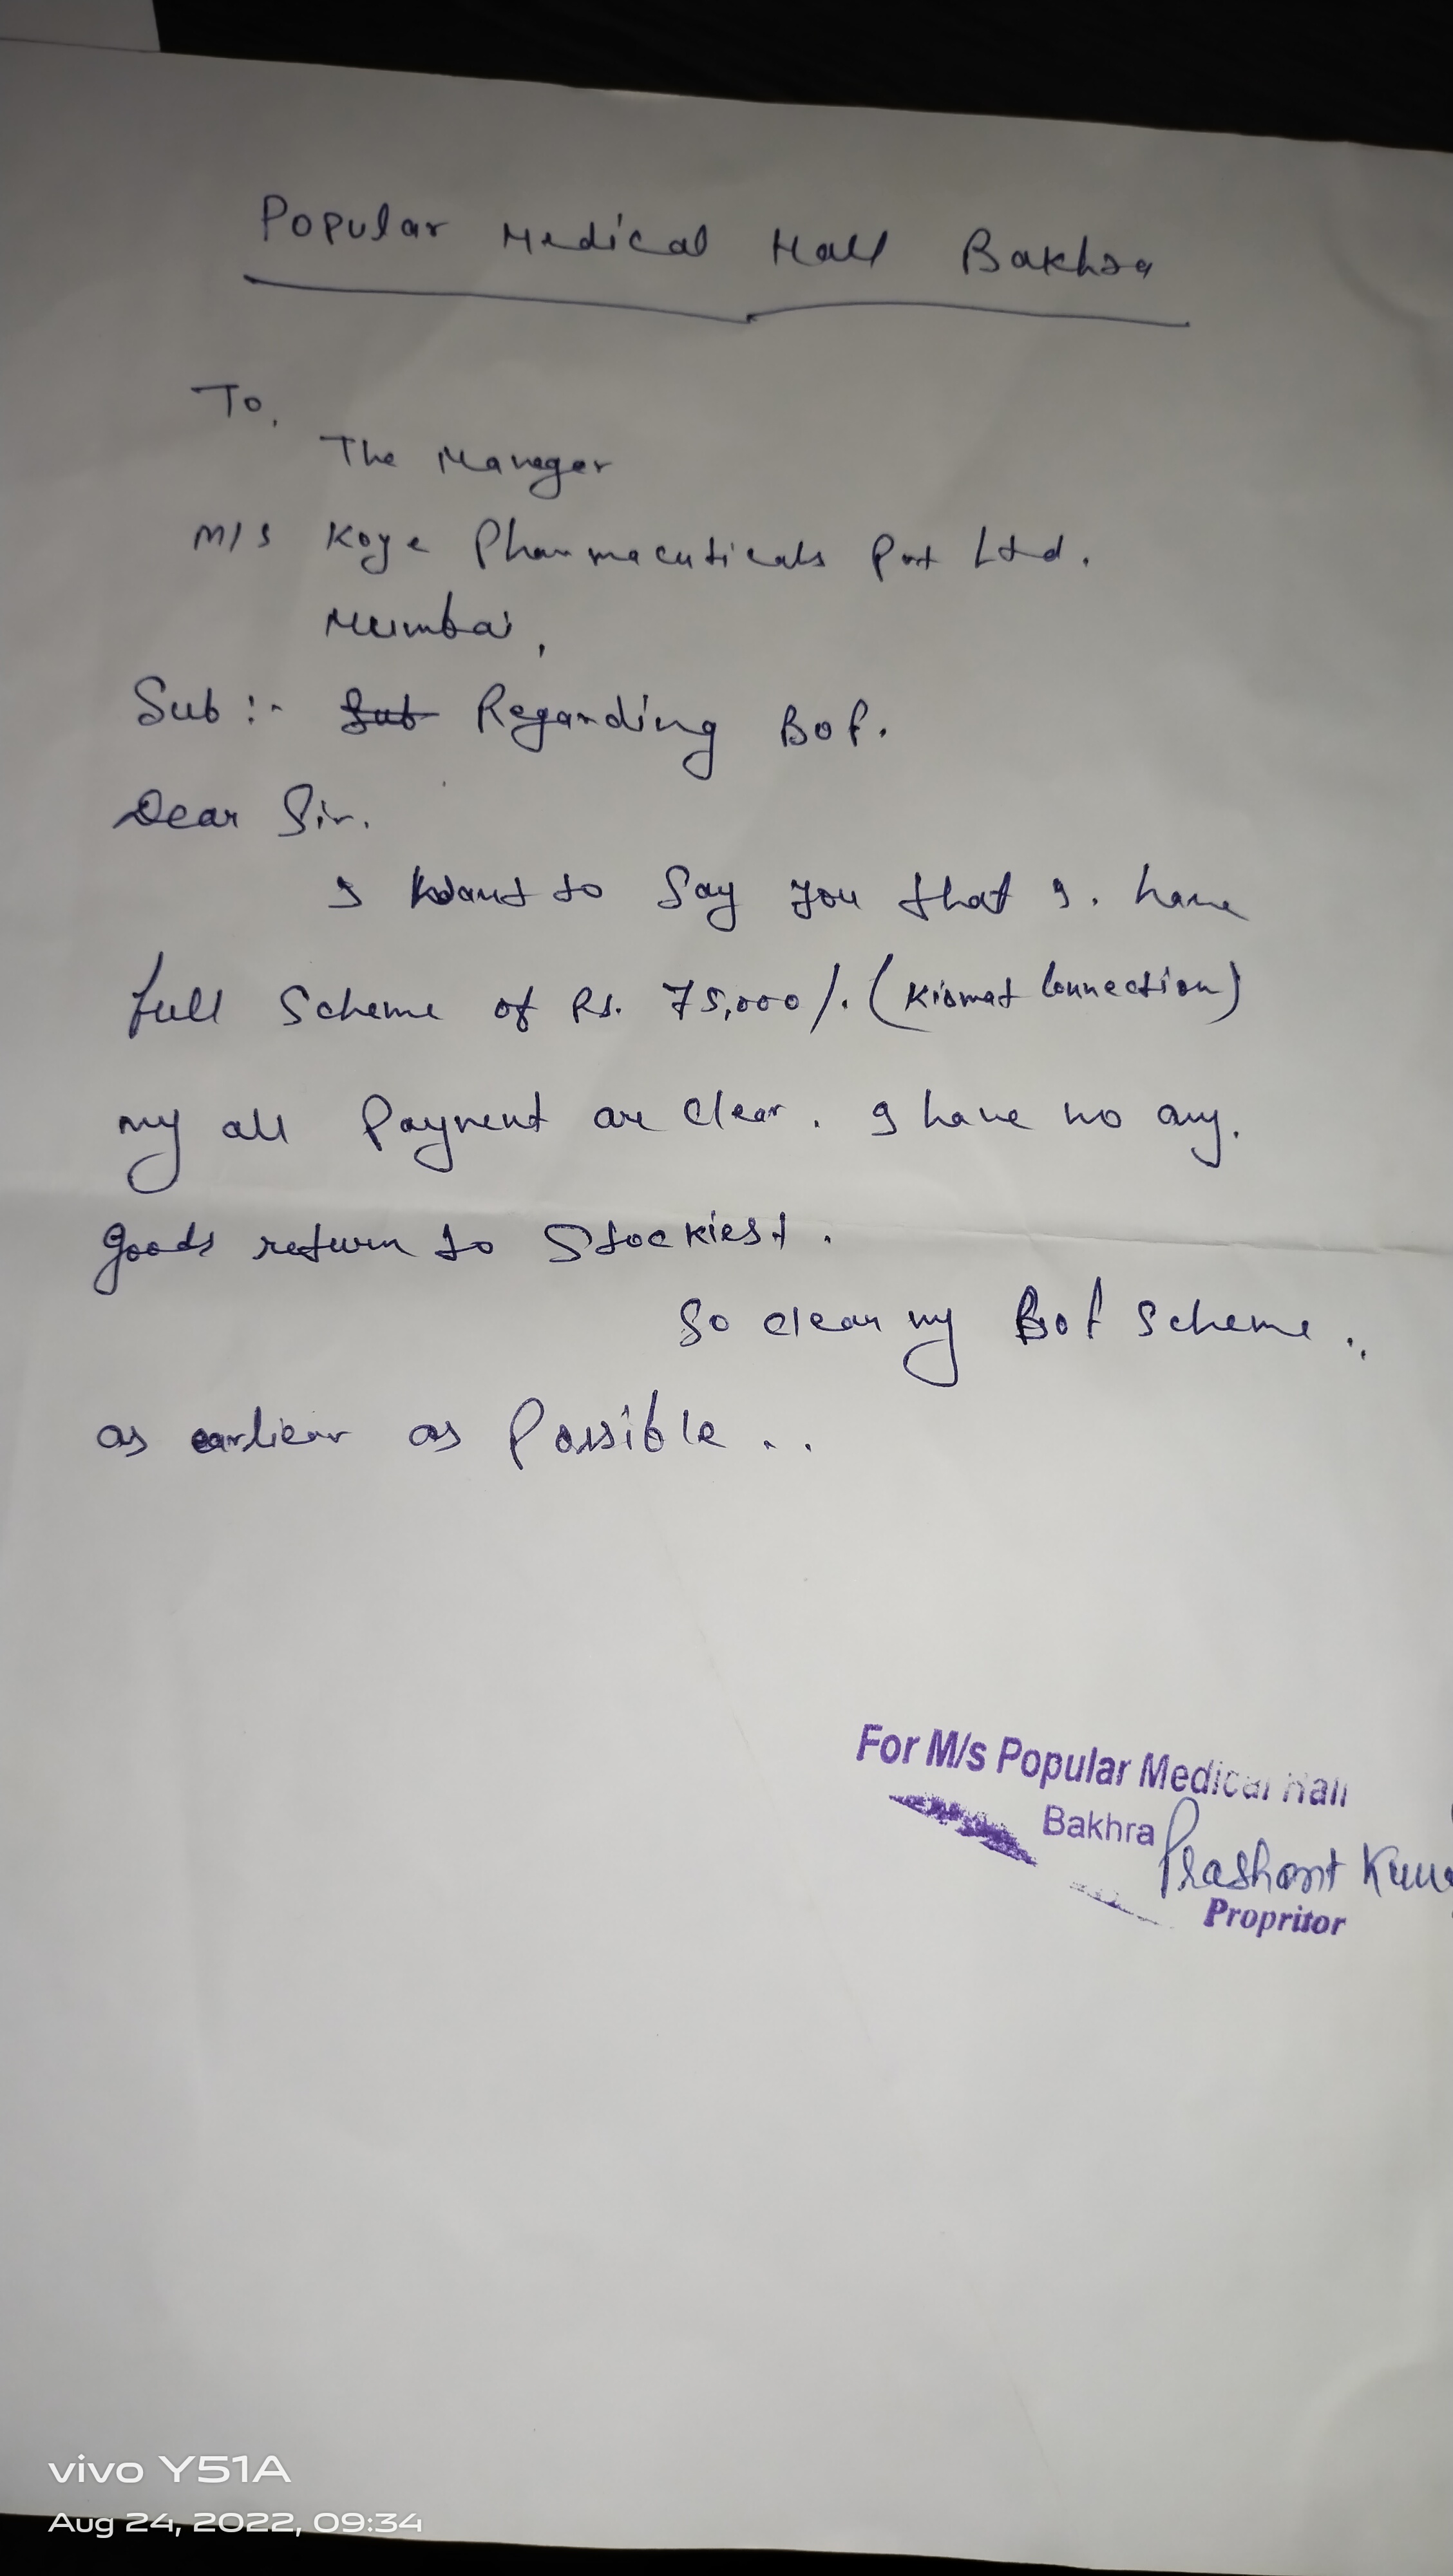 Popular Medical Hall Bakhra
To,
The Maneger
M/S Koye Pharmaceuticals Pvt Ltd.
Mumbai,
Sub :- Sub Regarding Bof.
Dear Sir.
I Want to Say you that I. have
full Scheme of Rs. 75,000/. (Kismat Connection)
my all Payment are Clear. I have no any.
goods return to Stockiest.
So clear my Bof Scheme..
as earlier as Possible...
For M/s Popular Medical Hall
Bakhra
Prashant
Propritor
vivo Y51A
Aug 24, 2022, 09:34